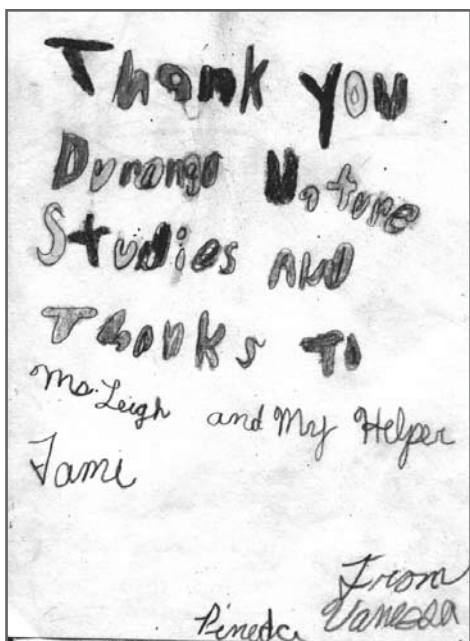 Thank you
Durango Nature
Studies and
Thanks to
Ms. Leigh and My Helper
Jami
From
Pineda Vanessa